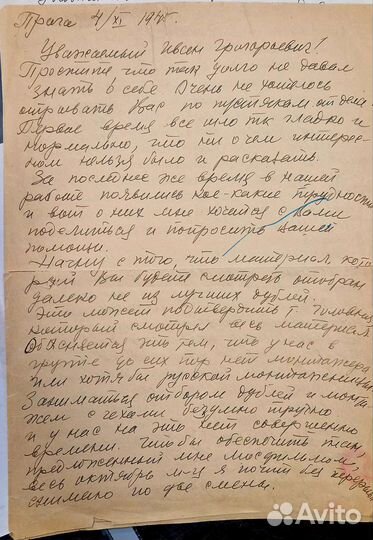 Прага 4/XI 1945г.
Уважаемый Ивсен Григорьевич!
Простите что так долго не давал
знать о себе. Очень не хотелось
отрывать Вас по пустякам от дела.
Первое время все шло так гладко и
нормально, что ни о чем интерес-
ном нельзя было и рассказать.
За последнее же время в нашей
работе появились кое-какие трудности
и вот о них мне хочется с Вами
поделиться и попросить Вашей
помощи.
Начну с того, что материал, кото-
рый Вы будете смотреть отобран
далеко не из лучших дублей.
Это может подтвердить т.
который смотрел весь материал.
Объясняется это тем, что у нас в
группе до сих пор нет монтажера
или хотя бы русской монтажницы.
Заниматься отбором дублей и монта-
жем с чехами безумно трудно
и у нас на это нет совершенно
времени. Чтобы обеспечить план,
предложенный мне Мосфильмом,
весь октябрь м-ц я почти без перерыва
снимаю по две смены.
Avito